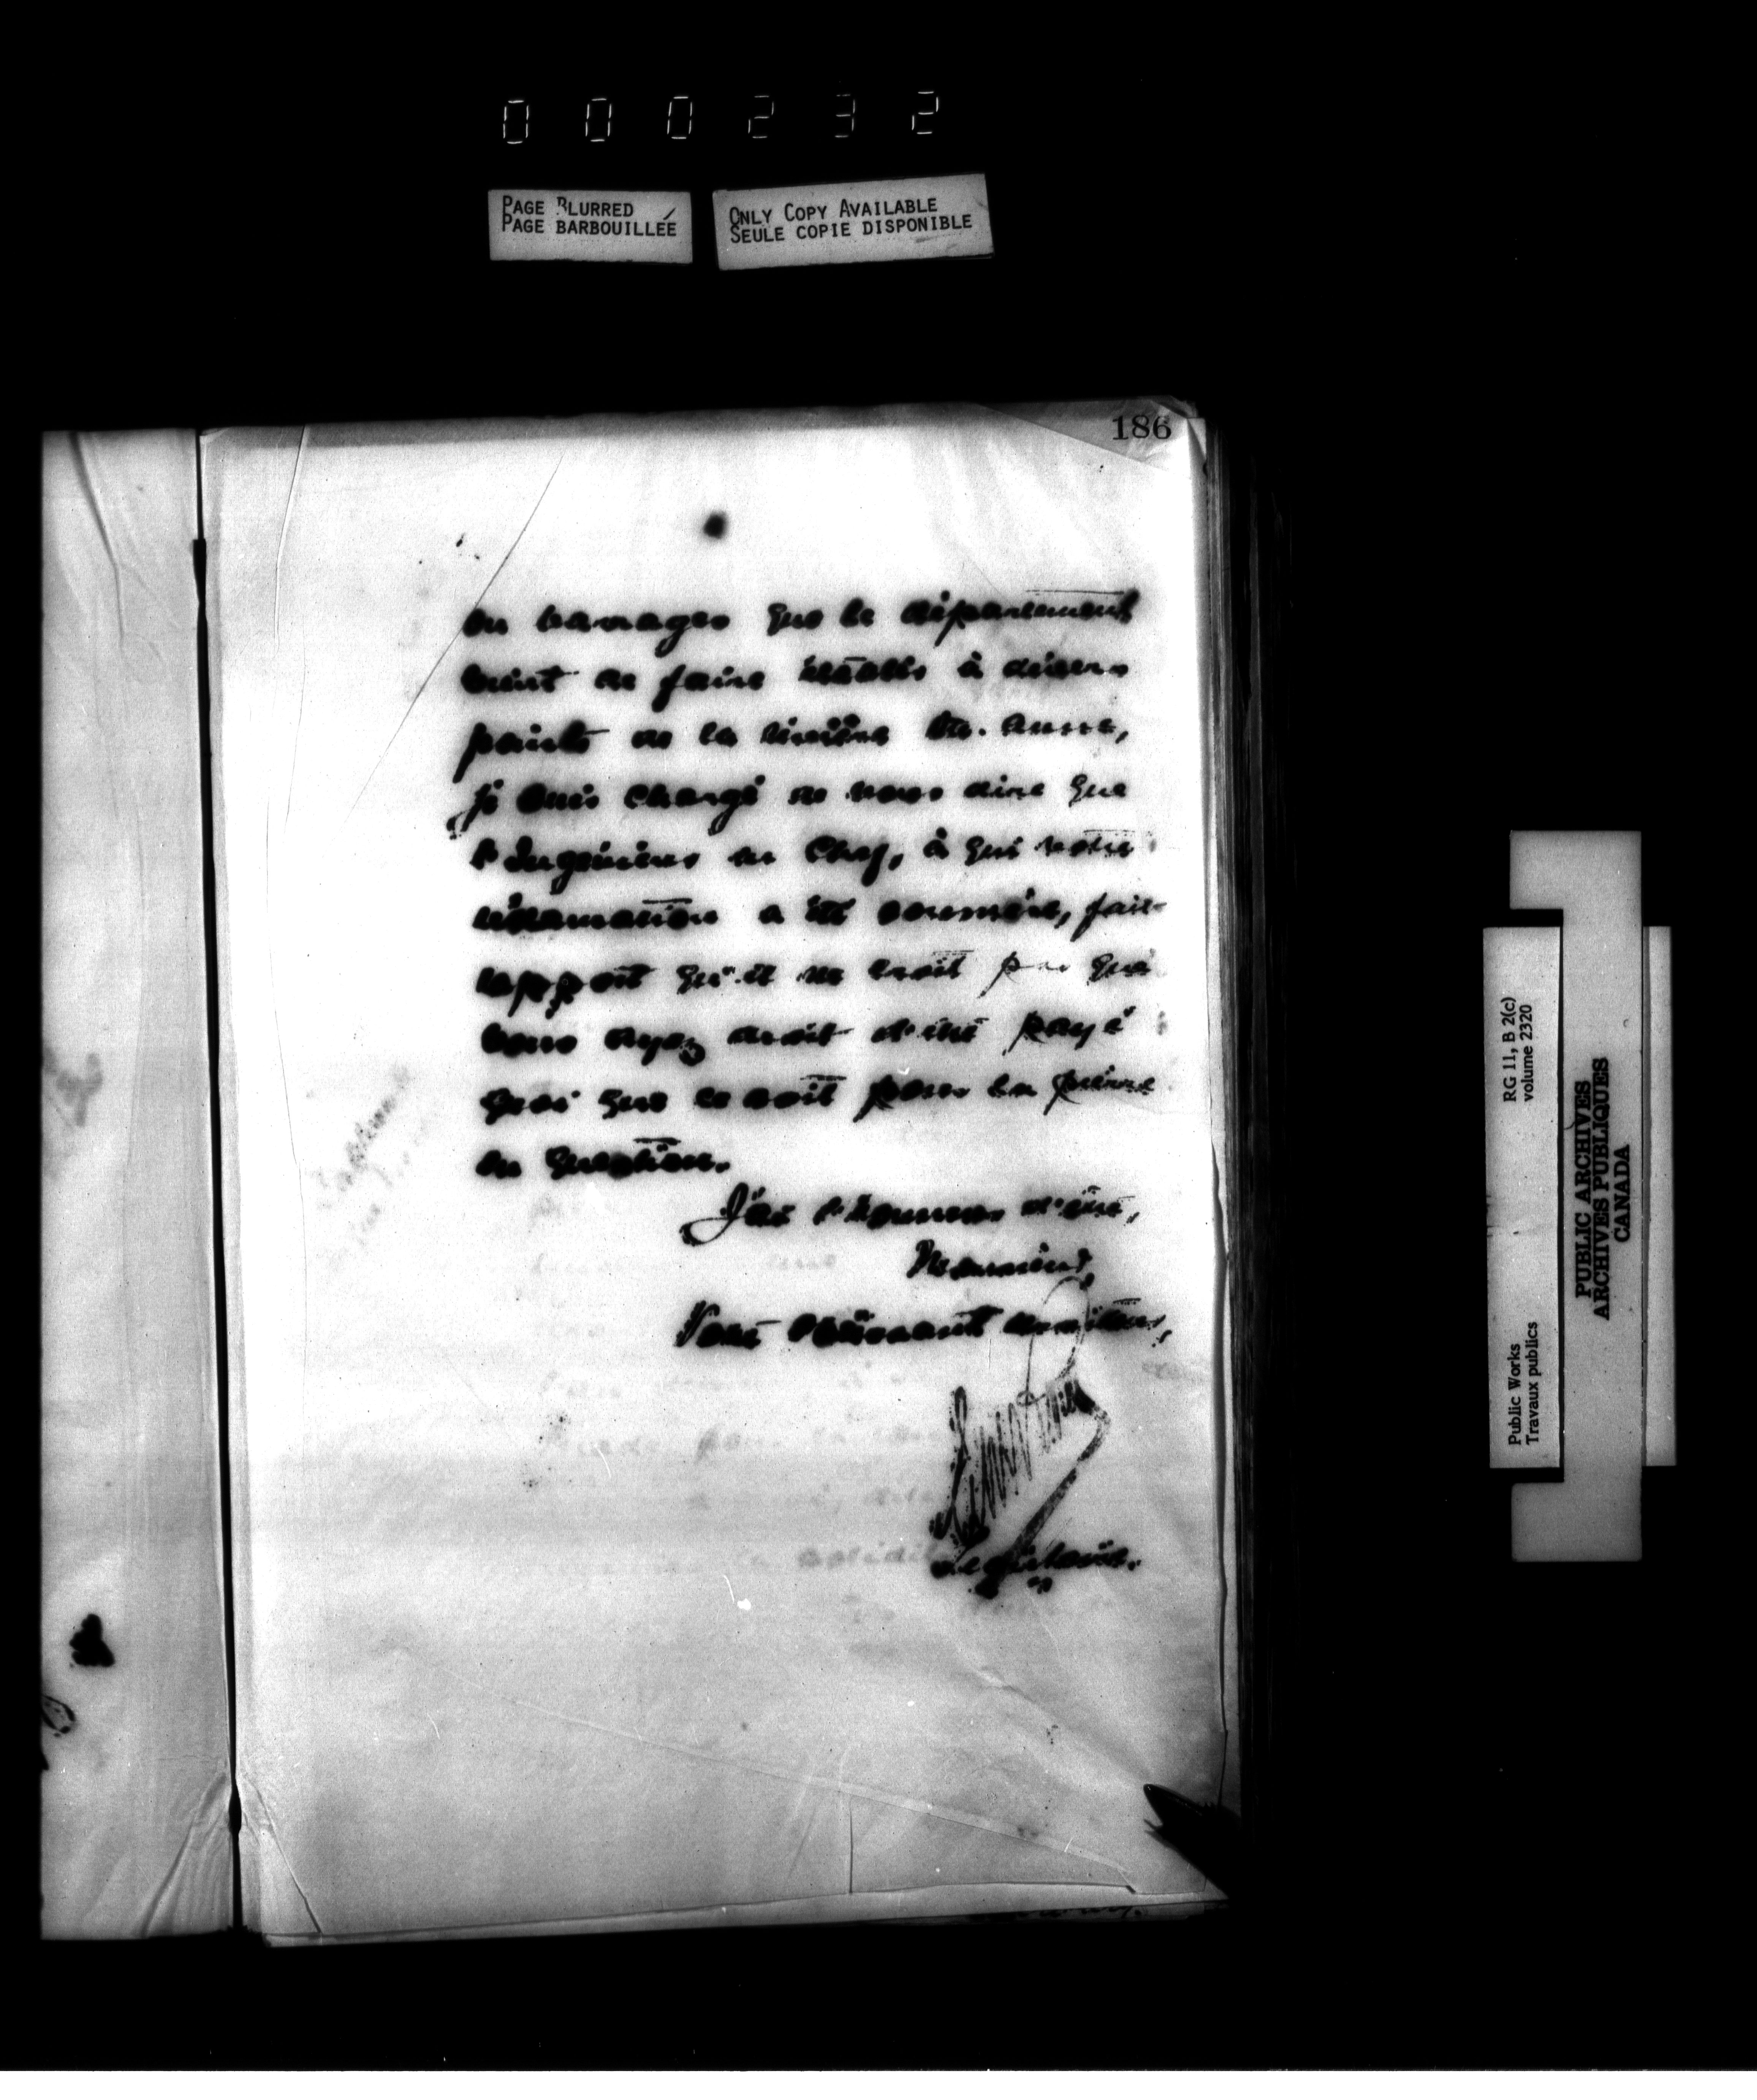 000232
PAGE BLURRED
PAGE BARBOUILLÉE
ONLY COPY AVAILABLE
SEULE COPIE DISPONIBLE
186
barrages que le département
vient de faire établir à divers
points de la rivière Ste. Anne,
je suis chargé de vous dire que
l'Ingénieur en Chef, à qui votre
réclamation a été soumise, fait
rapport qu'il ne croit pas que
vous ayez droit d'être payé
quoi que ce soit pour la pierre
en question.
J'ai l'honneur d'être,
Monsieur,
Votre obéissant serviteur,
Secrétaire.
Public Works
Travaux publics
RG 11, B 2(c)
volume 2320
PUBLIC ARCHIVES
ARCHIVES PUBLIQUES
CANADA